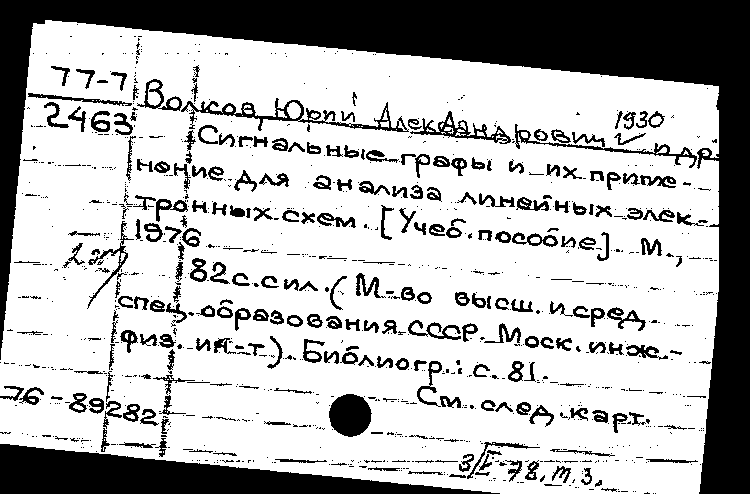 77-7
2463
Волков, Юрий Александрович 1930 и др.
Сигнальные графы и их приме-
нение для анализа линейных элек-
тронных схем. [Учеб. пособие]. М.,
1976.
2 эк
82 с. с ил. (М-во высш. и сред.
спец. образования СССР. Моск. инж.-
физ. ин-т). Библиогр.: с. 81.
См. след. карт.
76-89282